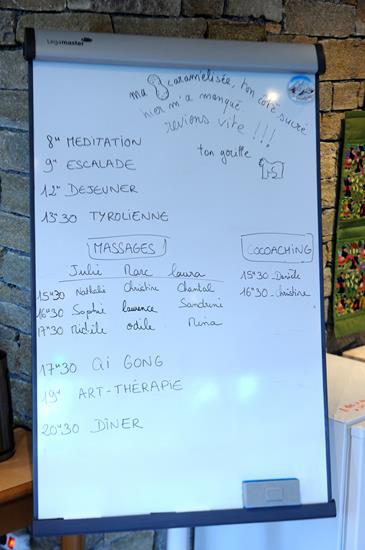 Legamaster
ma caramélisée, ton côté sucré
hier m'a manqué
reviens vite !!!
ton gorille
8H MEDITATION
9H ESCALADE
12H DEJEUNER
13H30 TYROLIENNE
MASSAGES
COCOACHING
Julie Marc Laura
15H30 Nathalie Christine Chantal
15H30 - Danièle
16H30 Sophie laurence Sandrine
16H30 - Christine
17H30 Michèle odile Nina
17H30 QI GONG
19H ART-THÉRAPIE
20H30 DÎNER